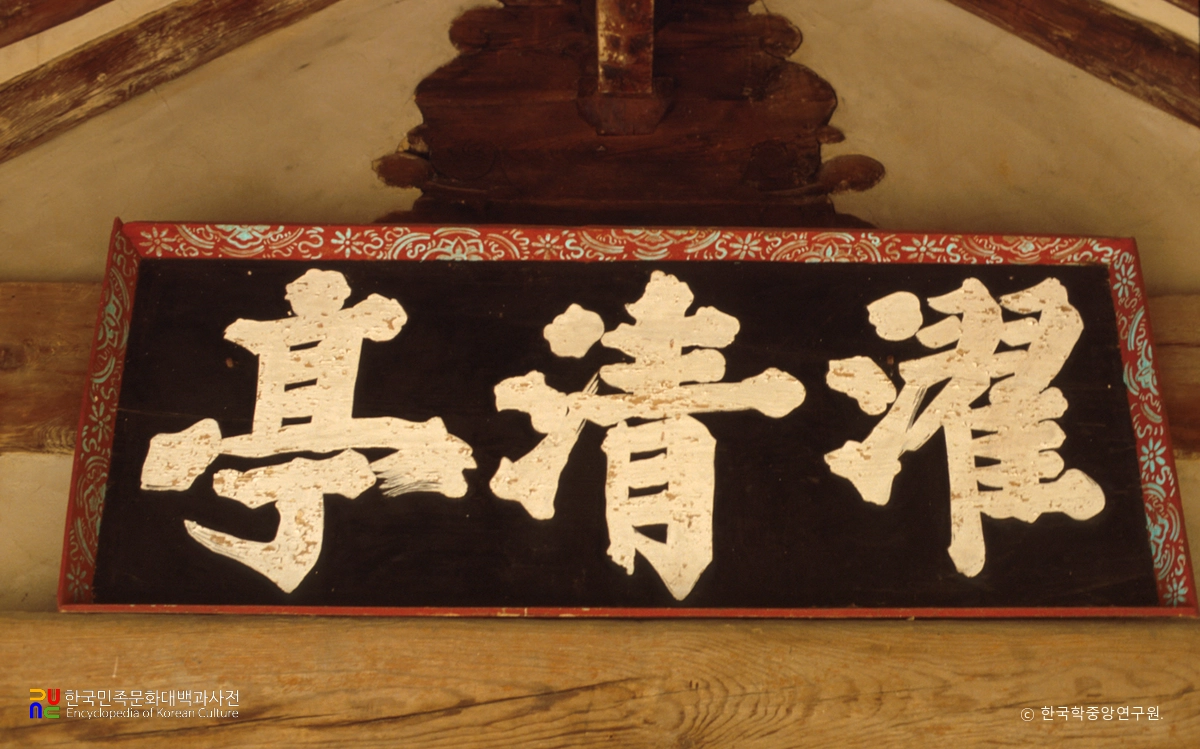 濯清亭
한국민족문화대백과사전
Encyclopedia of Korean Culture
ⓒ 한국학중앙연구원.